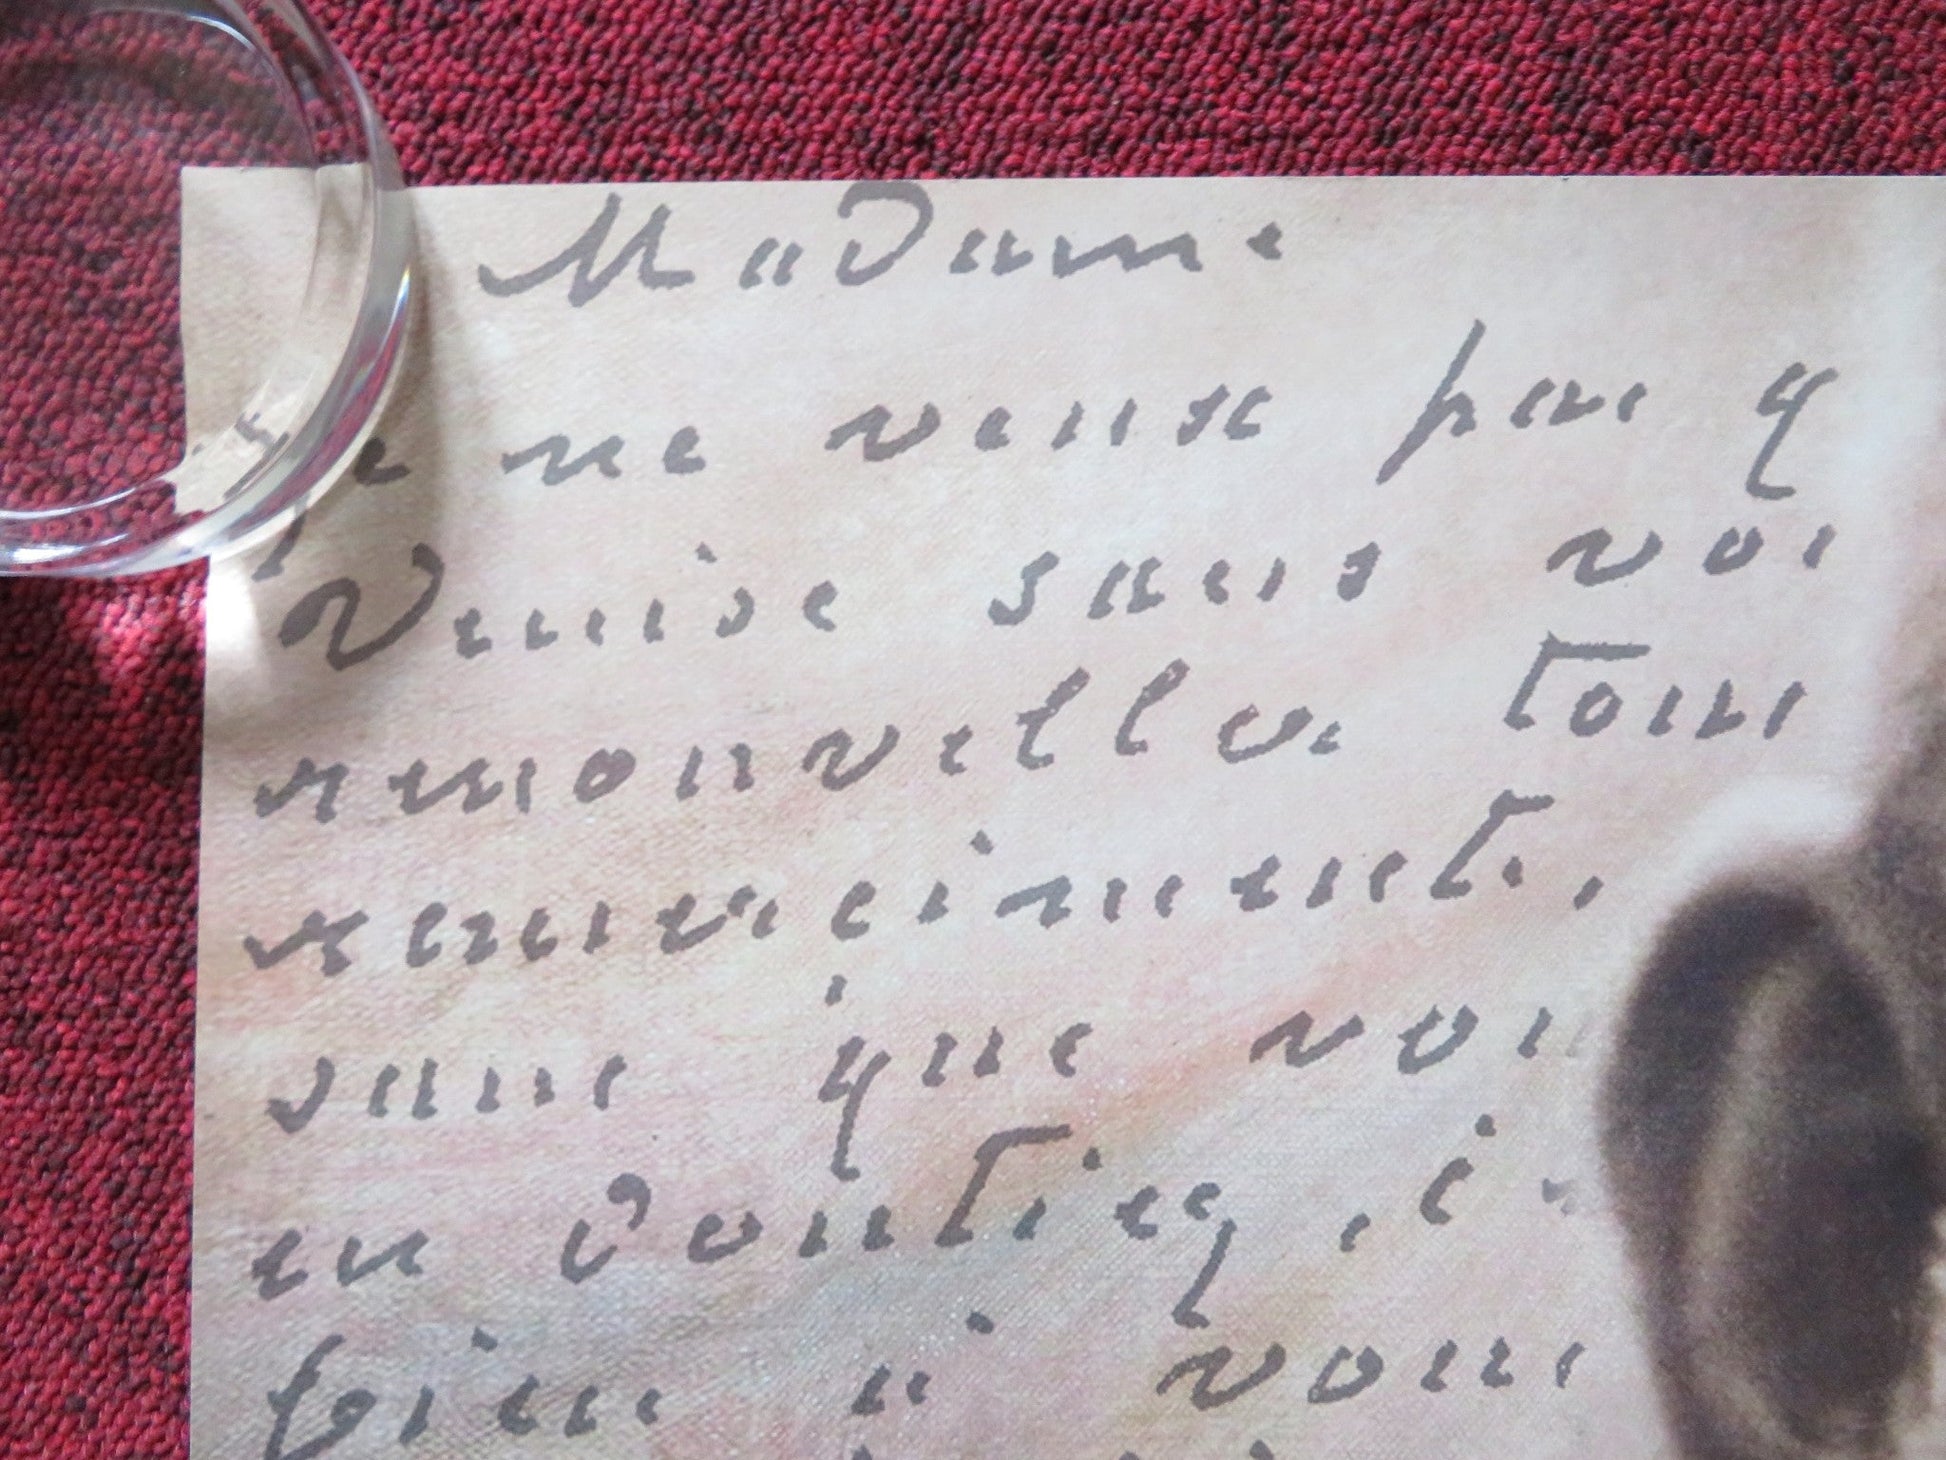 Madame
Je ne veux pas q
Venise sans vo
renouveller tous
remerciments,
sans que vo
en doutiez, c
bien à vous